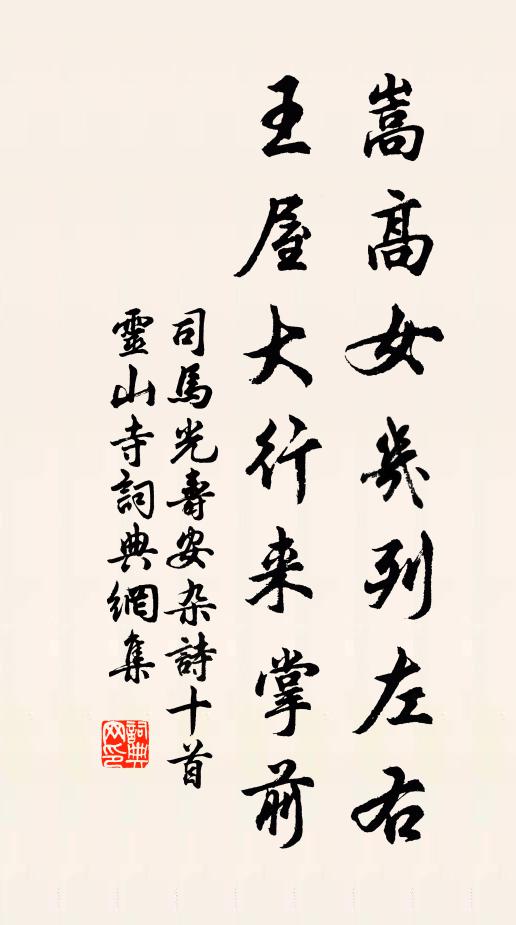 嵩高女㡬列左右
王屋大行来掌前
司馬光壽安杂詩十首
靈山寺詞典網集
詞典网印